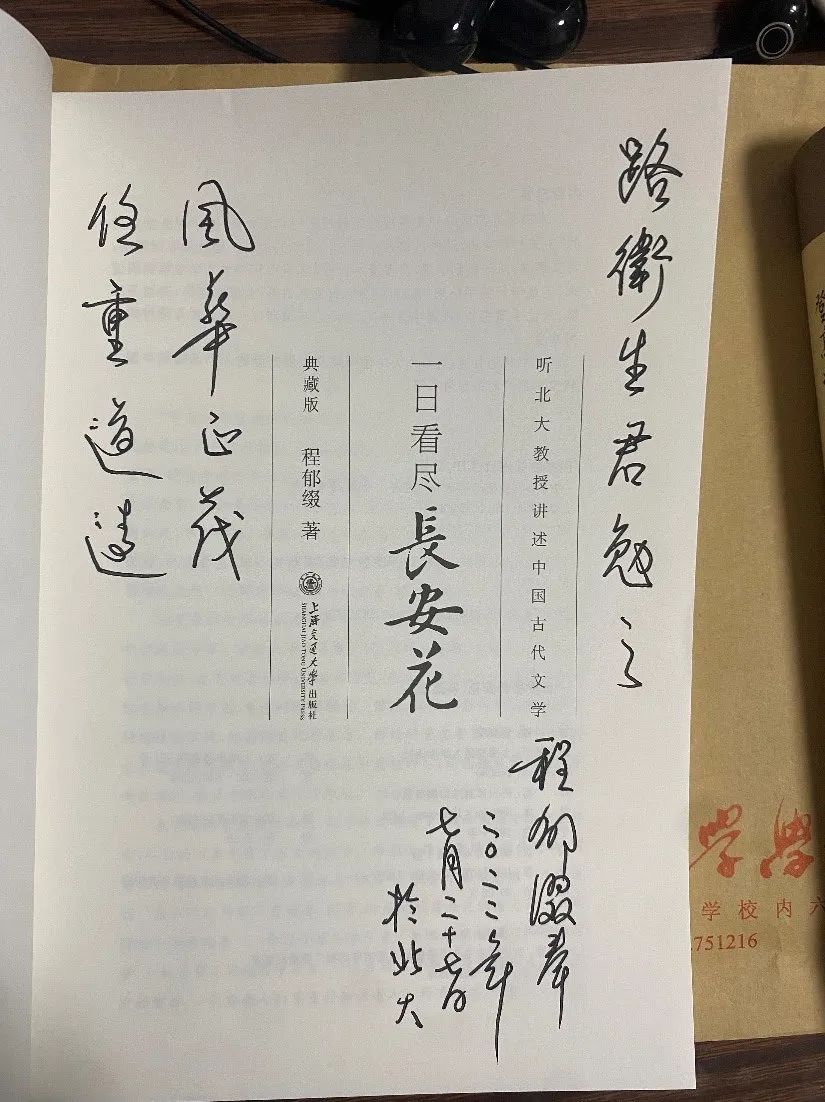 路衛生君勉之
听北大教授讲述中国古代文学
一日看尽長安花
典藏版 程郁缀 著
上海交通大学出版社
SHANGHAI JIAO TONG UNIVERSITY PRESS
風華正茂
任重道遠
程郁缀奉
二〇二二年
七月二十七日
於北大
学校内六
751216